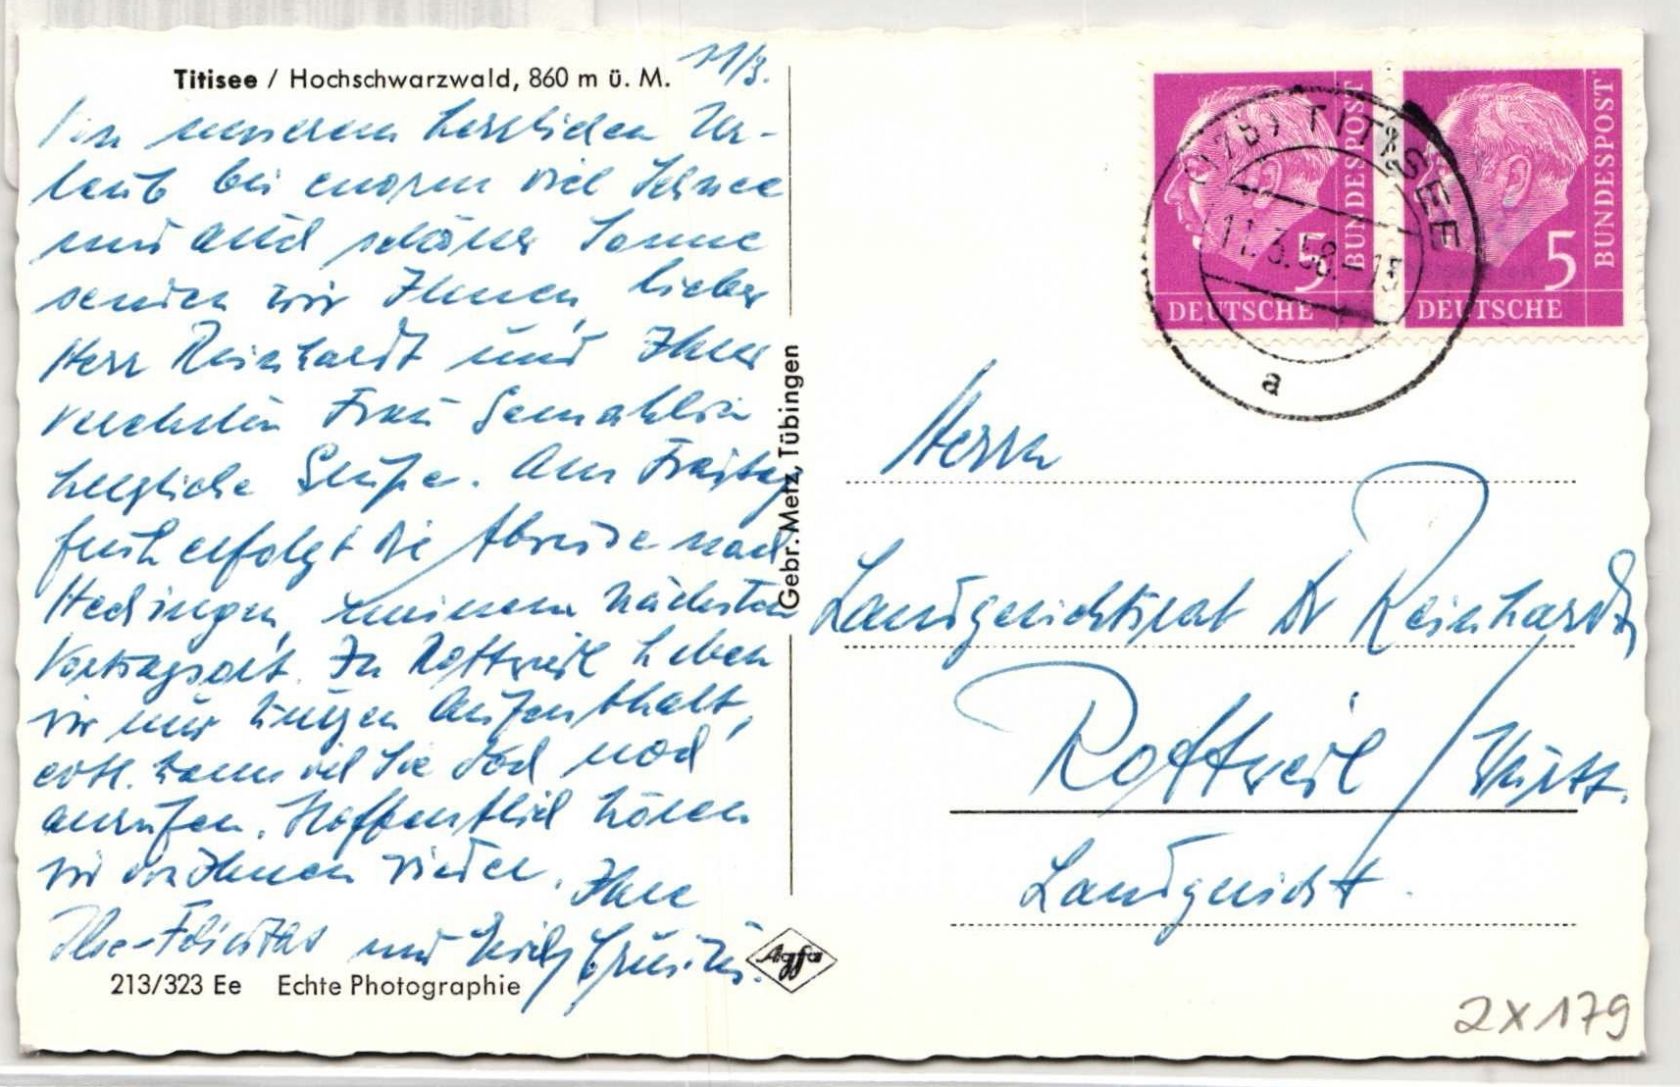 Titisee / Hochschwarzwald, 860 m ü. M.
11/3.
Von unserem herrlichen Ur-
laub bei enorm viel Schnee
und auch schöner Sonne
senden wir Ihnen, lieber
Herr Reinhardt und Ihrer
verehrten Frau Gemahlin
herzliche Grüße. Am Freitag
früh erfolgt die Abreise nach
Hechingen, meinem nächsten
Vortragsort. In Rottweil haben
wir nur kurzen Aufenthalt,
evtl. kann ich Sie doch noch
anrufen. Hoffentlich hören
wir von Ihnen wieder. Ihre
Ilse-Felicitas und
213/323 Ee Echte Photographie
Gebr. Metz, Tübingen
Agfa
DEUTSCHE BUNDESPOST 5
DEUTSCHE BUNDESPOST 5
(17b) TITISEE
11.3.58.-15
a
Herrn
Landgerichtsrat Dr Reinhardt
Rottweil / Württ.
Landgericht.
2 x 179